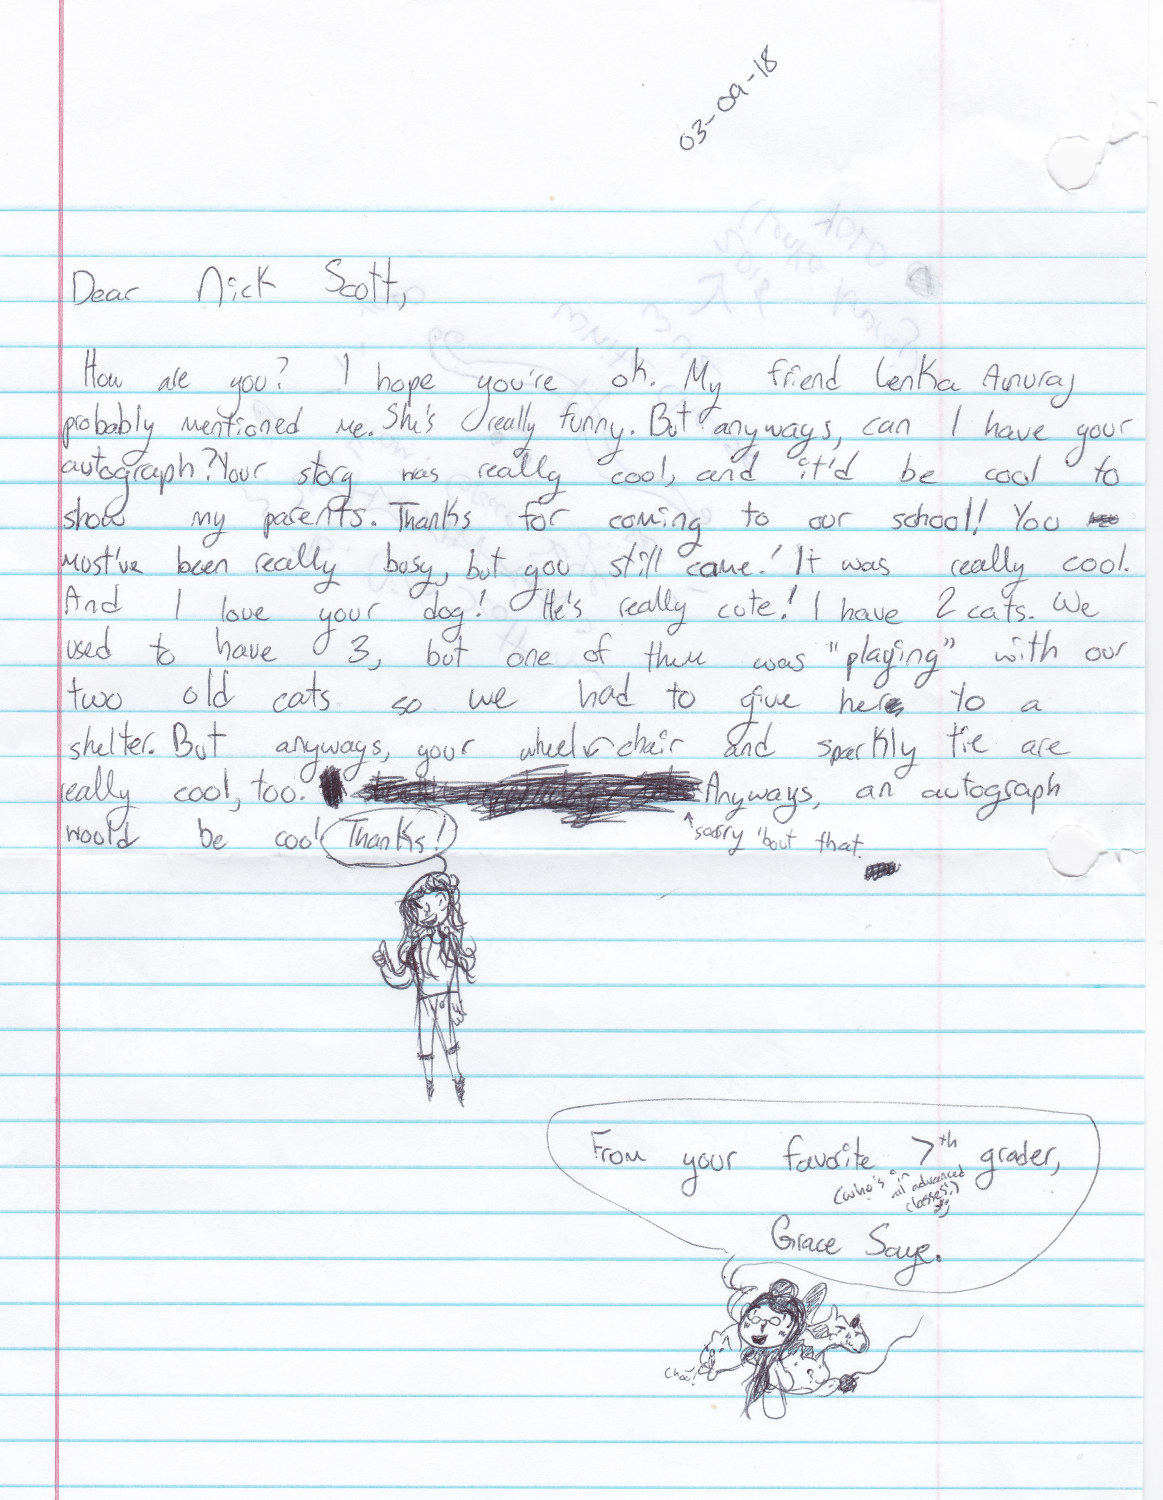 03-09-18
Dear Nick Scott,
How are you? I hope you're ok. My friend Lenka Amuraj
probably mentioned me. She's really funny. But anyways, can I have your
autograph? Your story was really cool, and it'd be cool to
show my parents. Thanks for coming to our school! You
must've been really busy, but you still came! It was really cool.
And I love your dog! He's really cute! I have 2 cats. We
used to have 3, but one of them was "playing" with our
two old cats so we had to give her to a
shelter. But anyways, your wheelchair and sparkly tie are
really cool, too. Anyways, an autograph
would be cool Thanks!
sorry 'bout that.
From your favorite 7th grader,
(who's in
all advanced
classes!)
Grace Saye.